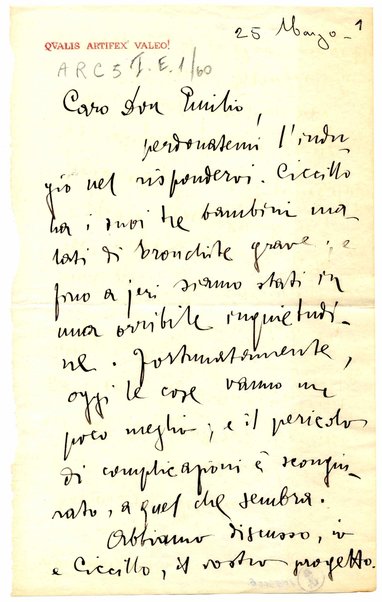 25 Marzo - 1
QVALIS ARTIFEX VALEO!
ARC 5 I.E.1/60
Caro Don Emilio,
perdonatemi l'indu-
gio nel rispondervi. Ciccillo
ha i suoi tre bambini ma-
lati di bronchite grave; e
fino a jeri siamo stati in
una orribile inquietudi-
ne. Fortunatamente,
oggi le cose vanno un
poco meglio; e il pericolo
di complicazioni è scongiu-
rato, a quel che sembra.
Abbiamo discusso, io
e Ciccillo, il vostro progetto.